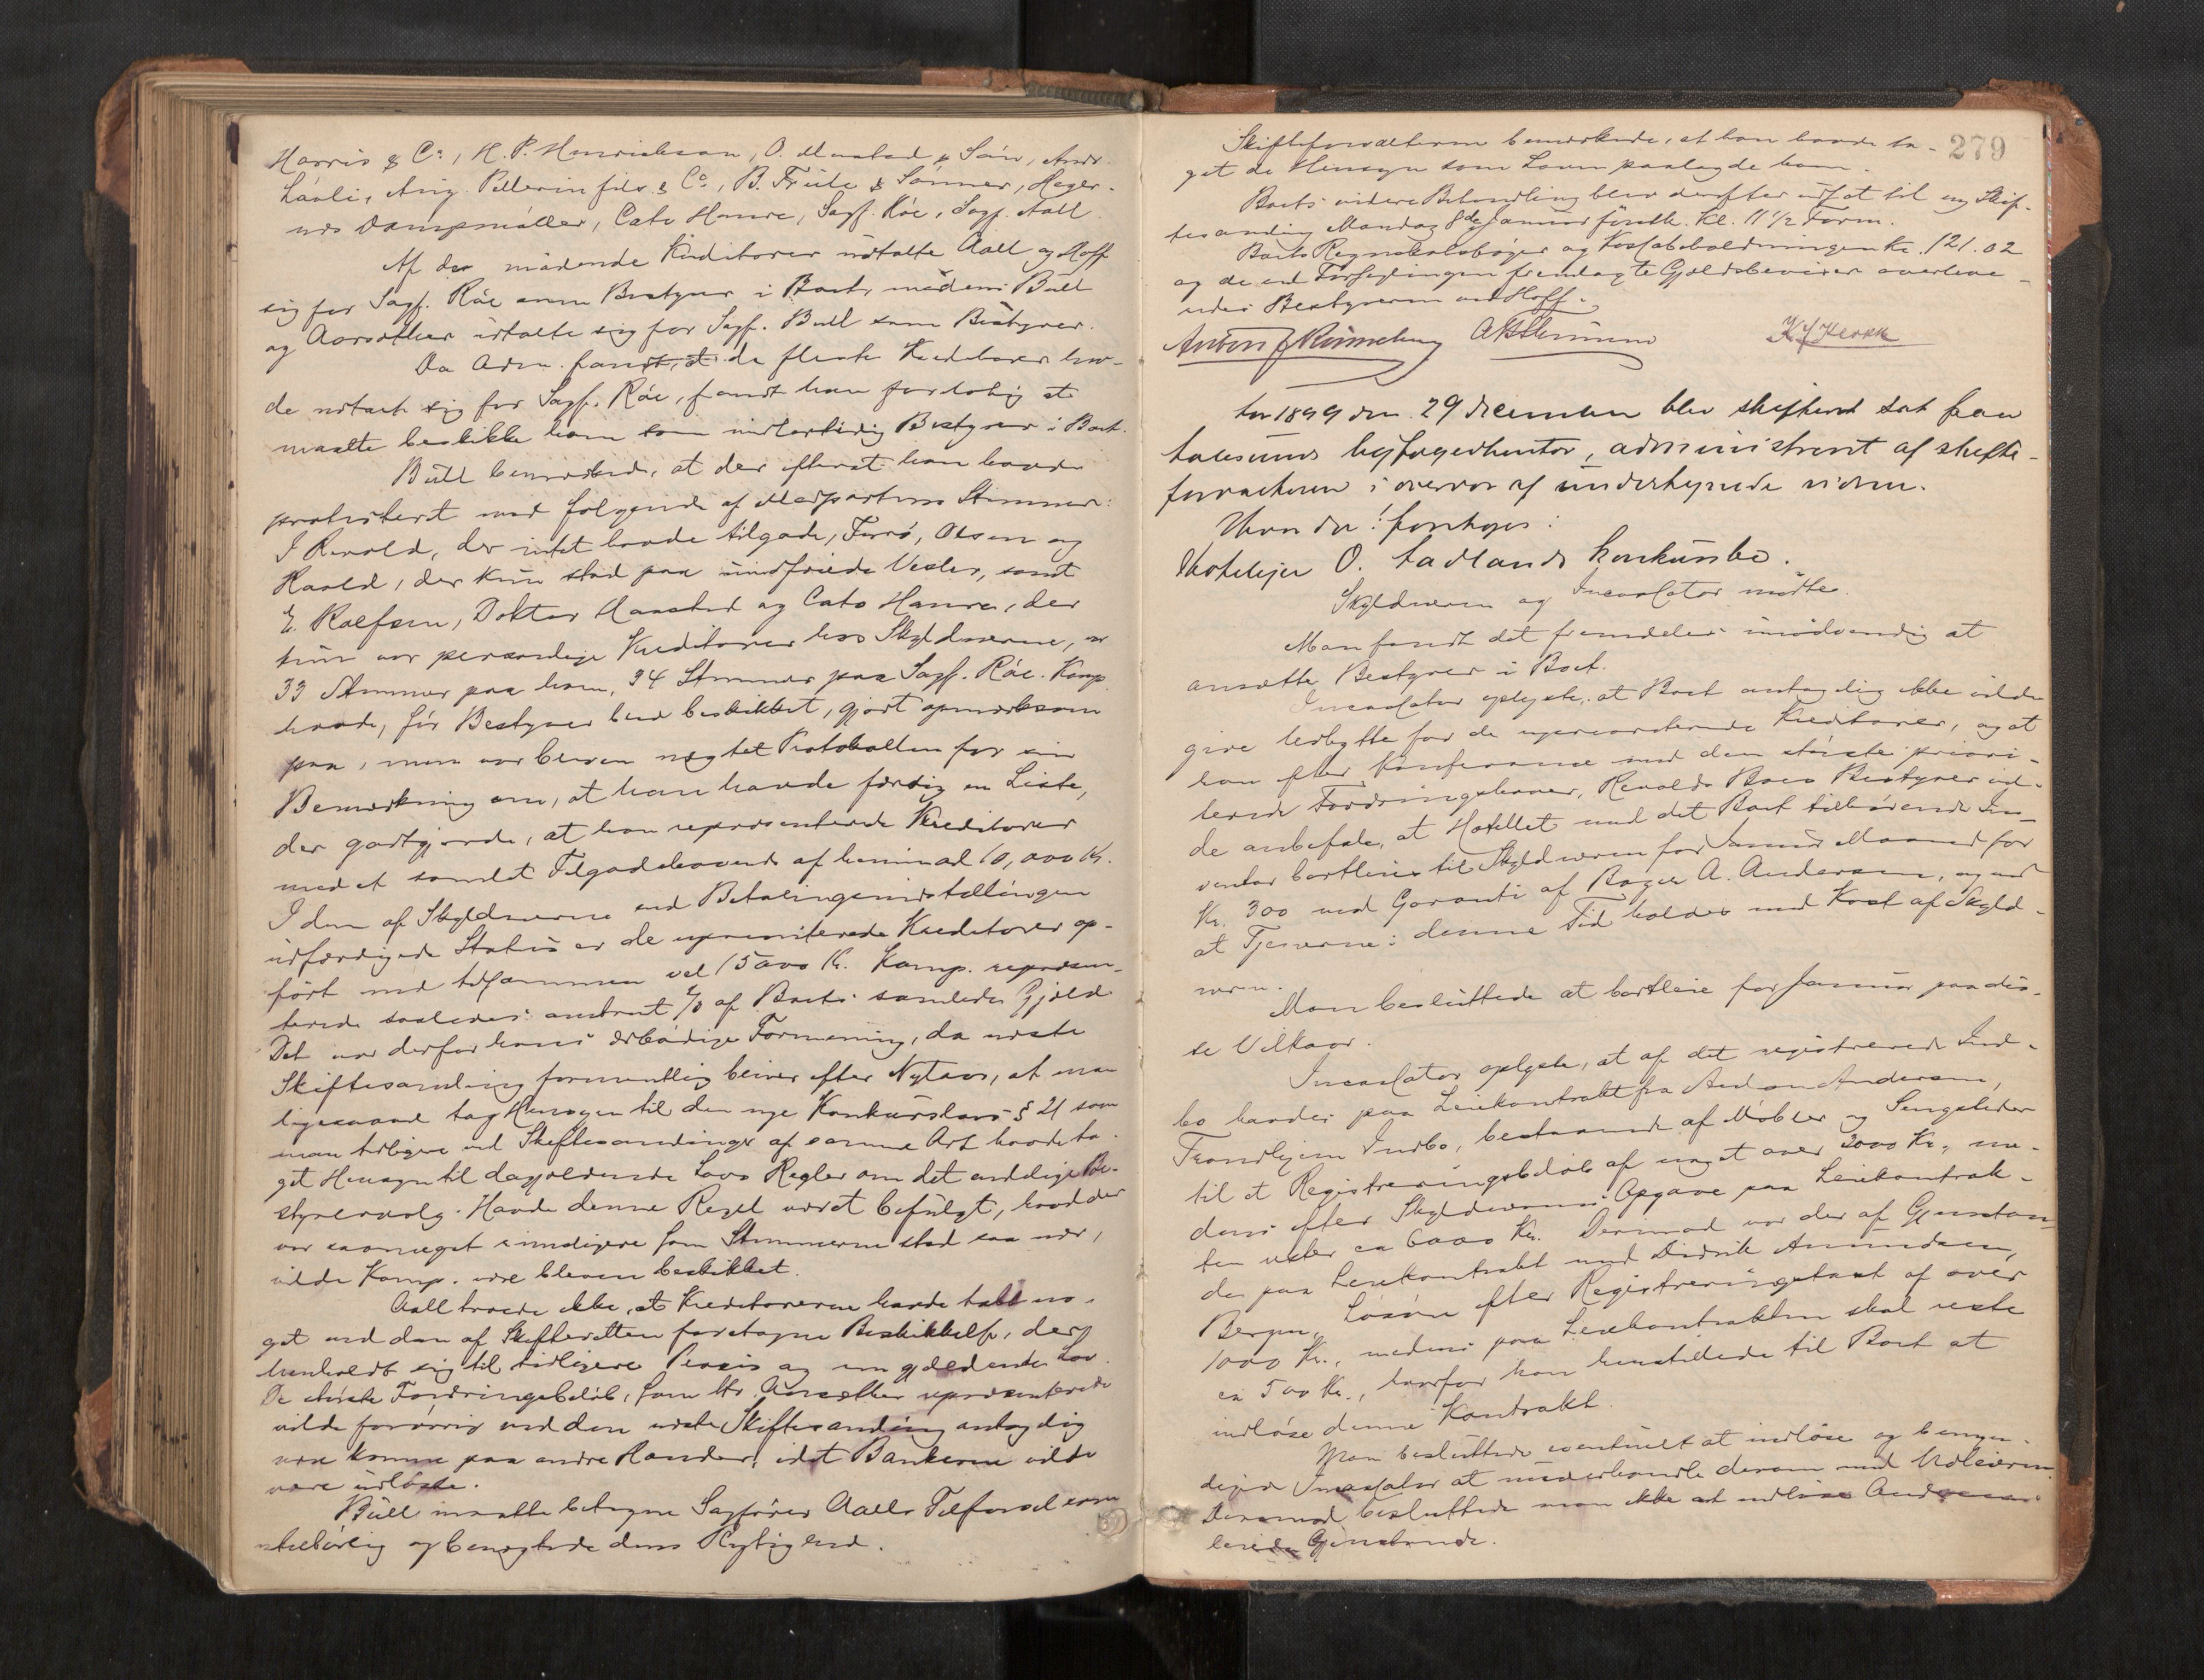 Harris & Co, H. P. Henrichsen, O. Mustad & Søn, Andr.
Laali, Aug. Pellerin fils & Co, B. Friele & Sønner, Hager-
nds Dampmøller, Cato Hansen, Sagf. Röe, Sagf. Aall
Af de mødende Kreditorer udtalte Aall og Hoff
sig for Sagf. Röe som Bestyrer i Boet, medens Büll
og Aarsæther udtalte sig for Sagf. Büll som Bestyrer.
Da Adm. fandt, at de fleste Kreditorer hav-
de udtalt sig for Sagf. Röe, fandt han foreløbig at
maatte beskikke ham som midlertidig Bestyrer i Boet.
Büll bemærkede, at der efterat han havde
protesteret mod følgende af Modpartens Stemmer:
J Rivold, der intet havde tilgode, Furö, Olsen og
Haald, der kun stod paa uindfriede Vexler, samt
E. Rolfsen, Doktor Haasted og Cato Hansen, der
kun var personlige Kreditorer hos Skyldnerne, er
33 Stemmer paa ham, 34 Stemmer paa Sagf. Röe. Komp.
havde, før Bestyrer blev beskikket, gjort opmærksom
paa, men var bleven nægtet Protokollen for sin
Bemærkning om, at han havde færdig en Liste,
der godtgjorde, at han repræsenterede Kreditorer
med et samlet Tilgodehavende af henimod 10,000 Kr.
I den af Skyldnerne ved Betalingsindstillingen
udfærdigede Status er de uprioriterede Kreditorer op-
ført med tilsammen vel 15000 Kr. Komp. repræsen-
terede saaledes omtrent 2/3 af Boets samlede Gjæld
Det var derfor hans ærbødige Formening, da næste
Skiftesamling formentlig bliver efter Nytaar, at man
ligesaavel tog Hensyn til den nye Konkurslovs § 21 som
man tidligere ved Skiftesamlinger af samme Art havde ta-
get Hensyn til dagjældende Lovs Regler om det endelige Be-
styrervalg. Havde denne Regel været befulgt, hvad der
var saameget rimeligere som Stemmerne stod saa nær,
vilde Komp. være bleven beskikket.
Aall troede ikke, at Kreditorerne havde tabt no-
get ved den af Skifteretten foretagne Beskikkelse, der
henholdt sig til tidligere Praxis og nu gjældende Lov.
De største Fordringsbeløb, som Hr. Aarsæther repræsenterede
vilde forøvrig ved den næste Skiftesamling antagelig
være komne paa andre Hænder, idet Bankerne vilde
være indløste.
Büll maatte betegne Sagfører Aalls Tilførsel som
utilbørlig og benægtede dens Rigtighed.
279
Skifteforvalteren bemærkede, at han havde ta-
get de Hensyn som Loven paalagde ham.
Boets videre Behandling blev derefter udsat til ny Skif-
tesamling Mandag 8de Januar førstk. Kl. 11 1/2 Form.
Boets Regnskabsbøger og Kassabeholdningen Kr. 121.02
og de ved Forseglingen fremlagte Gjældsbeviser overleve-
redes Bestyreren ved Hoff.
Anton J Rønneberg
Aar 1899 den 29 december blev skifteret sat paa
Aalesunds byfogedkontor, administreret af skifte-
forvalteren i overvær af underskrevne vidner.
Hvor da foretoges:
Hotelejer O. Aadlands konkursbo.
Skyldneren og Incassator mødte.
Man fandt det fremdeles unødvendig at
ansætte Bestyrer i Boet.
Incassator oplyste, at Boet antagelig ikke vilde
give Udbytte for de uprioriterede Kreditorer, og at
han efter Konferance med den største priori-
terede Fordringshaver, Rivolds Boes Bestyrer vil-
de anbefale, at Hotellet med det Boet tilhørende In-
ventar bortleies til Skyldneren for Januar Maaned for
Kr. 300 med Garanti af Bager A. Andersen, og med
at Tjenerne i denne Tid holdes med Kost af Skyld-
neren.
Man besluttede at bortleie for Januar paa dis-
se Vilkaar.
Incassator oplyste, at af det registrerede Ind-
bo havdes paa Leiekontrakt fra Anton Andersen,
Trondhjem Indbo, bestaaende af Møbler og Sengeklæder
til et Registreringsbeløb af noget over 3000 Kr., me-
dens efter Skyldnerens Opgave paa Leiekontrak-
ten rester ca 6000 Kr. Derimod var der af Gjenstan-
de paa Leiekontrakt med Didrik Amundsen,
Bergen, Løsøre efter Registreringstaxt af over
1000 Kr., medens paa Leiekontrakten skal reste
ca 500 Kr., hvorfor han henstillede til Boet at
indløse denne Kontrakt.
Man besluttede eventuelt at indløse og bemyn-
digede Incassator at underhandle derom med Udleieren.
Derimod besluttede man ikke at indløse Andersens
leiede Gjenstande.